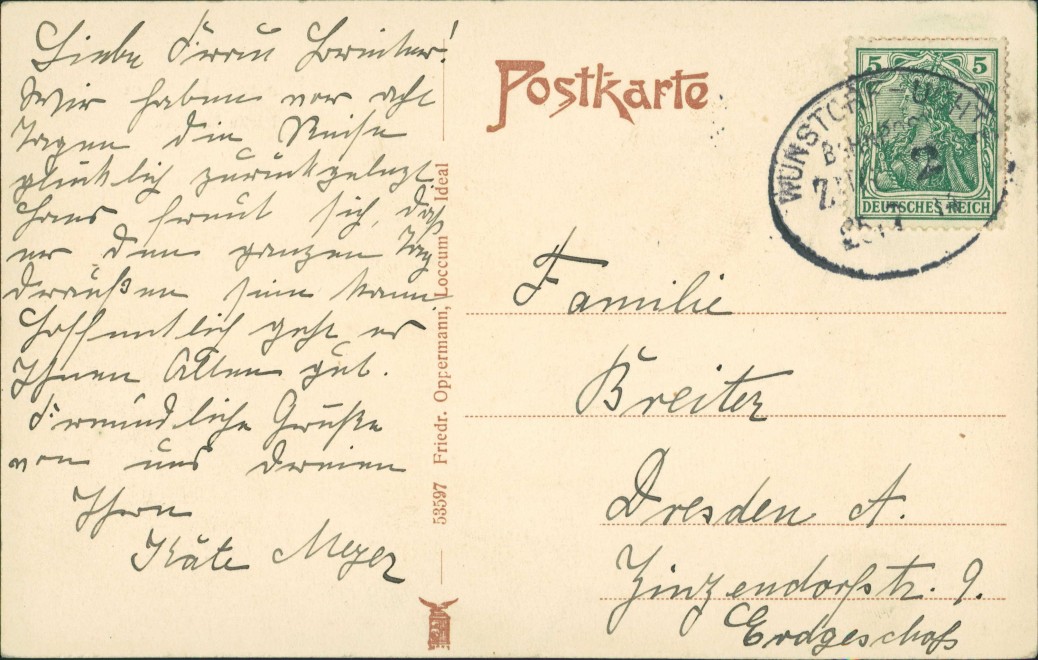 Liebe Frau Breiter!
Wir haben vor acht
Tagen die Reise
glücklich zurückgelegt
Hans freut sich, daß
er den ganzen Tag
draußen sein kann
Hoffentlich geht es
Ihnen Allen gut.
Freundliche Grüße
von uns dreien
Ihre
Käte Meyer
53597 Friedr. Oppermann, Loccum Ideal
Postkarte
5 5
DEUTSCHES REICH
WUNSTORF - UCHTE
Familie
Breiter
Dresden A.
Zinzendorfstr. 9.
Erdgeschoß